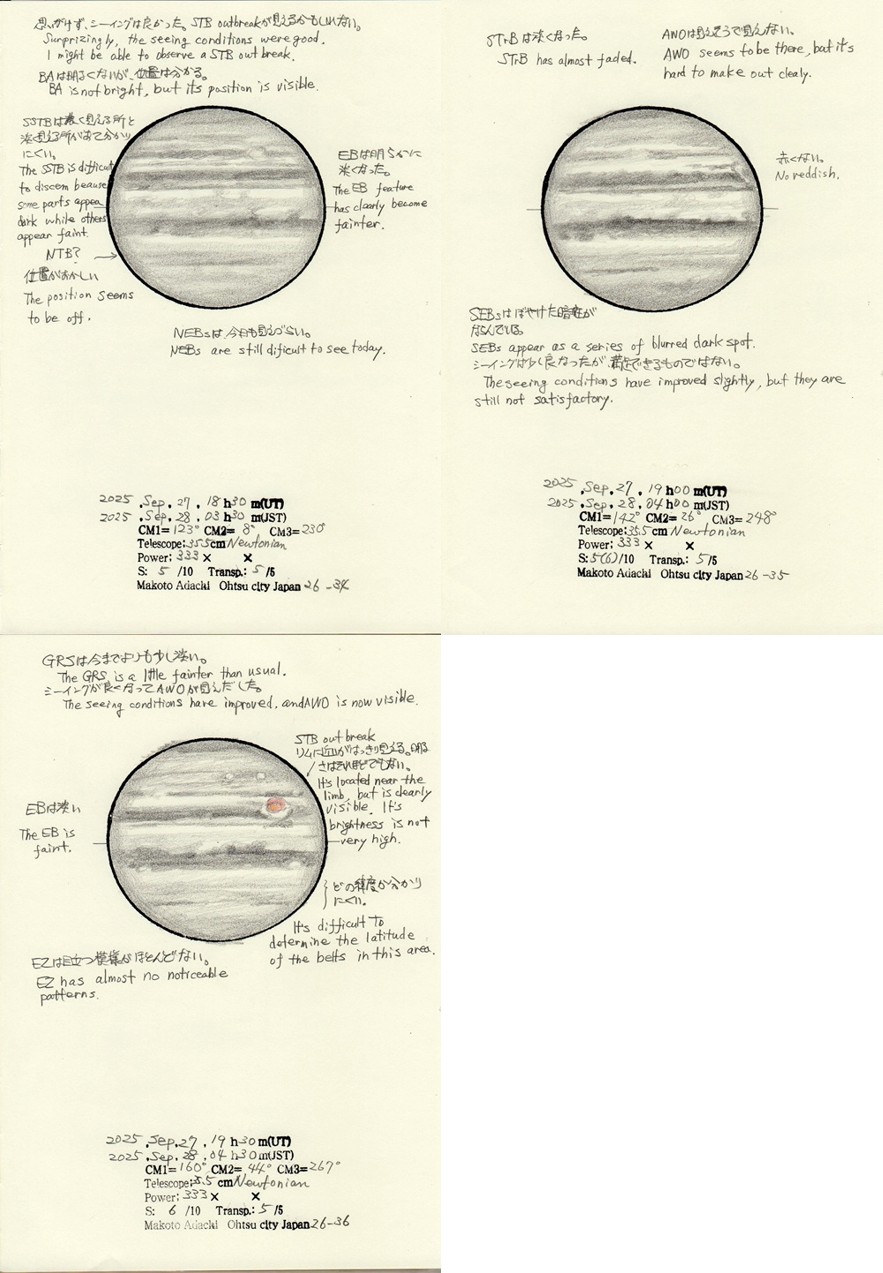 思いがけず、シーイングは良かった。STB outbreakが見えるかもしれない。
Surprizingly, the seeing conditions were good.
I might be able to observe a STB out break.
BAは明るくないが、位置は分かる。
BA is not bright, but its position is visible.
SSTBは濃く見える所と
淡く見える所があって分かり
にくい。
The SSTB is difficult
to discern because
some parts appear
dark while others
appear faint.
NTB?
位置がおかしい
The position seems
to be off.
EBは明らかに
淡くなった。
The EB feature
has clearly become
fainter.
NEBsは今日も見えづらい。
NEBs are still dificult to see today.
2025 .Sep. 27 , 18 h30 m(UT)
2025 .Sep. 28 , 03 h30 m(JST)
CM1=123° CM2= 8° CM3=230°
Telescope:35.5cm Newtonian
Power: 333 × ×
S: 5 /10 Transp.: 5 /5
Makoto Adachi Ohtsu city Japan 26-34
STrBは淡くなった。
STrB has almost faded.
AWOは見えそうで見えない。
AWO seems to be there, but it's
hard to make out clealy.
赤くない。
No reddish.
SEBsはぼやけた暗斑が
ならんでいる。
SEBs appear as a series of blurred dark spot.
シーイングは少し良くなったが、満足できるものではない。
The seeing conditions have improved slightly, but they are
still not satisfactory.
2025 .Sep. 27 , 19 h00 m(UT)
2025 .Sep. 28 , 04 h00 m(JST)
CM1=142° CM2= 26° CM3=248°
Telescope:35.5cm Newtonian
Power: 333 × ×
S:5(6)/10 Transp.: 5 /5
Makoto Adachi Ohtsu city Japan 26-35
GRSは今までよりも少し淡い。
The GRS is a little fainter than usual.
シーイングが良くなってAWOが見えだした。
The seeing conditions have improved, and AWO is now visible.
STB out break
リムに近いがはっきり見える。明る
さはそれほどでもない。
It's located near the
limb, but is clearly
visible. It's
brightness is not
very high.
EBは淡い
The EB is
faint.
どの緯度か分かり
にくい。
It's difficult to
determine the latitude
of the belts in this area.
EZは目立つ模様がほとんどない。
EZ has almost no noticeable
patterns.
2025 .Sep. 27 , 19 h30 m(UT)
2025 .Sep. 28 , 04 h30 m(JST)
CM1=160° CM2= 44° CM3=267°
Telescope:35.5 cm Newtonian
Power: 333 × ×
S: 6 /10 Transp.: 5 /5
Makoto Adachi Ohtsu city Japan 26-36